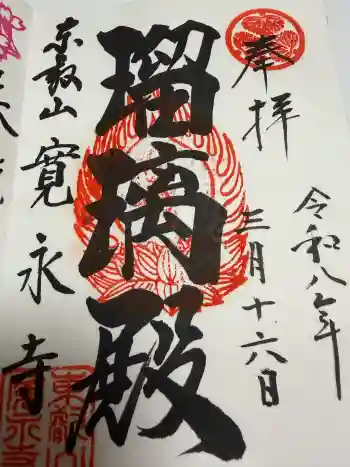 奉拝
令和八年
三月十六日
瑠璃殿
東叡山 寛永寺